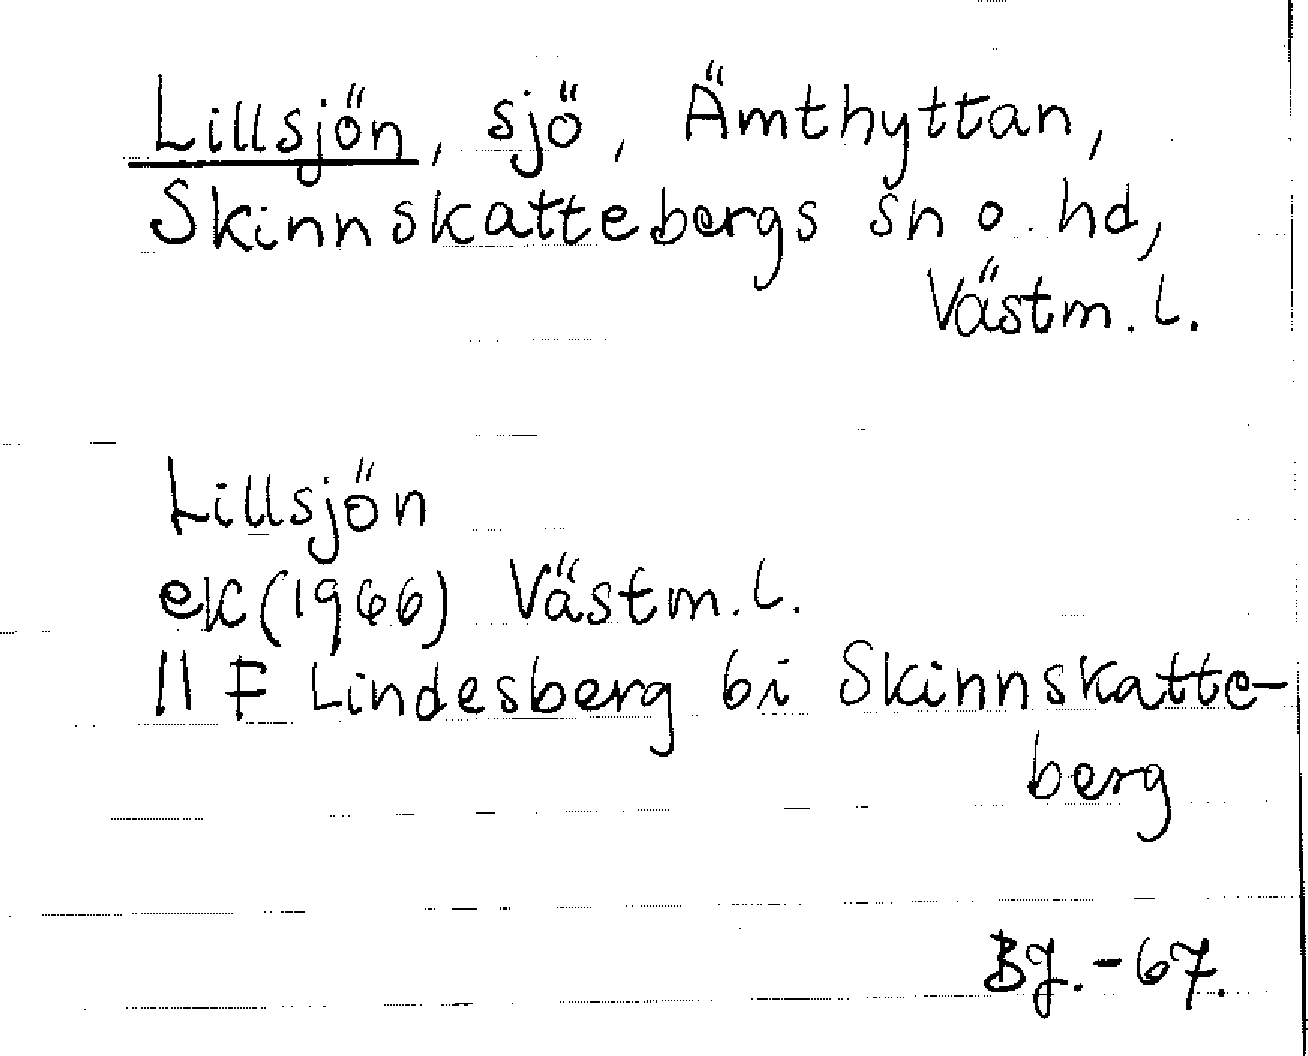 Lillsjön, sjö, Ämthyttan,
Skinnskattebergs sn o. hd,
Västm. l.
Lillsjön
ek (1966) Västm. l.
11 F Lindesberg bi Skinnskatte-
berg
BJ. - 67.